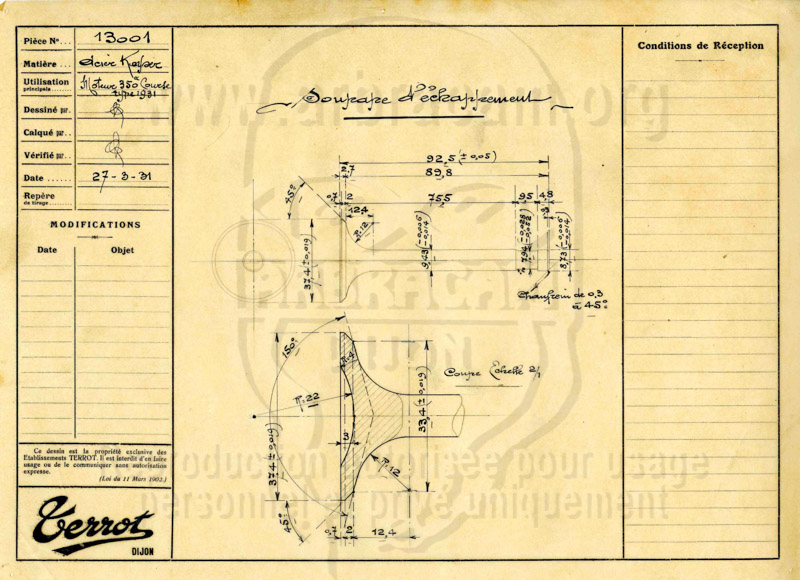 Pièce Nº... 13001
Matière... Acier Kayser
Utilisation
principale...... Moteur 350 Course
type 1931
Dessiné par.
Calqué par..
Vérifié par..
Date....... 27-3-31
Repère
de tirage........
MODIFICATIONS
Date Objet
Ce dessin est la propriété exclusive des
Etablissements TERROT. Il est interdit d'en faire
usage ou de le communiquer sans autorisation
expresse.
(Loi du 11 Mars 1902.)
Terrot
DIJON
Soupape d'échappement
92,5 (±0,05)
89,8
0,7 2 75,5 95 4,8
12,4 3
45°
R.12
37,4 ±0,019
Chanfrein de 0,3
à 45°
150°
R.4
R.22
3
37,4 (±0,019)
33,4 (±0,019)
R.12
45°
0,7 2 12,4
Coupe Echelle 2/1
Conditions de Réception
DIJON
reproduction autorisée pour usage
personnel et privé uniquement